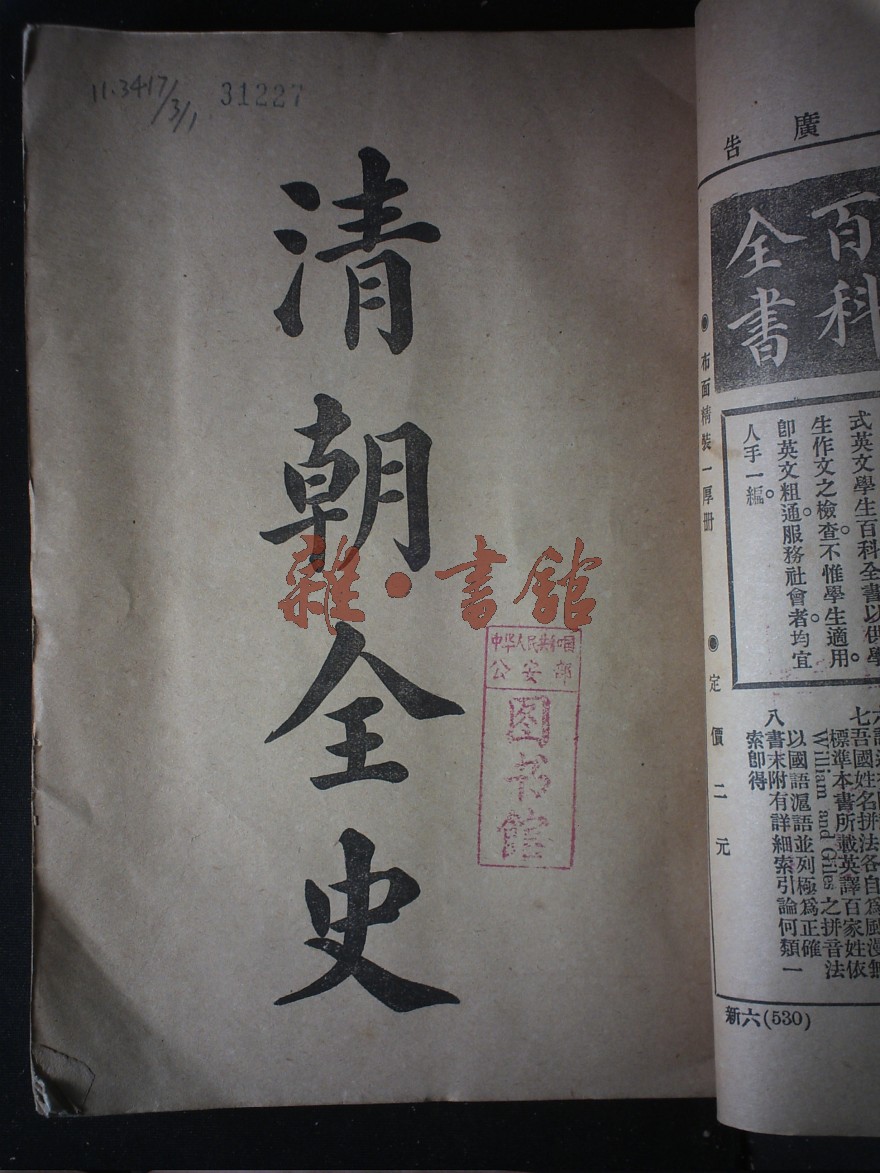 11.3417/3/1
31227
清朝全史
雜·書館
中华人民共和国
公安部
图书馆
廣告
百科
全書
●布面精裝一厚册 ●定價二元
式英文學生百科全書以供學
生作文之檢查不惟學生適用。
卽英文粗通服務社會者均宜
人手一編。
七吾國姓名拼法各自爲風漫無
標準本書所載英譯百家姓依
William and Giles之拼音法
以國語滬語並列極爲正確
八書末附有詳細索引論何類一
索卽得
新六(530)